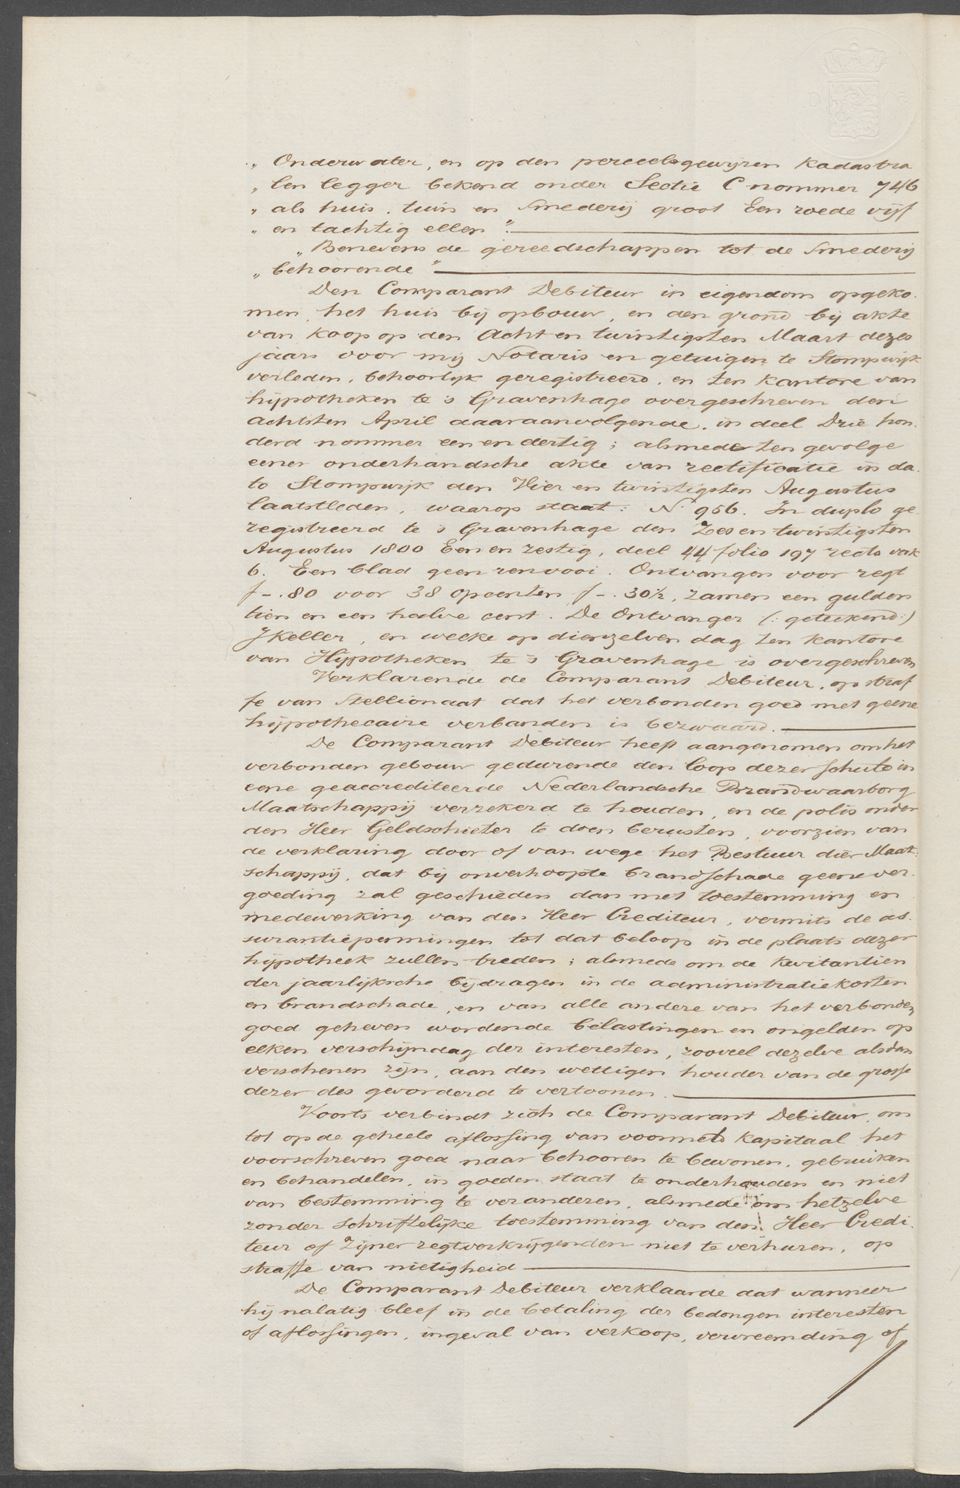 „ Onderwater, en op den perceelsgewijzen Kadastra
„ len legger bekend onder Sectie C nommer 746
„ als huis, tuin en Smederij groot Een roede vijf
„ en tachtig ellen ”
„ Benevens de gereedschappen tot de Smederij
„ behoorende ”
Den Comparant Debiteur in eigendom opgeko-
men, het huis bij opbouw, en den grond bij akte
van koop op den Acht en twintigsten Maart dezes
jaars voor mij Notaris en getuigen te Stompwijk
verleden, behoorlijk geregistreerd, en ten kantore van
hijpotheken te 's Gravenhage overgeschreven den
achtsten April daaraanvolgende, in deel Drie hon-
derd nommer een en dertig; alsmede ten gevolge
eener onderhandsche akte van rectificatie in da-
to Stompwijk den Vier en twintigsten Augustus
laatstleden, waarop staat: N° 956. In duplo ge-
registreerd te 's Gravenhage den Zes en twintigsten
Augustus 1800 Een en zestig, deel 44 folio 197 recto vak
6. Een blad geen renvooi. Ontvangen voor regt
f -.80 voor 38 opcenten f -.30½, zamen een gulden
tien en een halve cent. De Ontvanger (: geteekend:)
JKeller, en welke op dienzelven dag ten kantore
van Hijpotheken te 's Gravenhage is overgeschreven
Verklarende de Comparant Debiteur, op straf
fe van Stellionaat dat het verbonden goed met geene
hijpothecaire verbanden is bezwaard.
De Comparant Debiteur heeft aangenomen om het
verbonden gebouw gedurende den loop dezer schuld in
eene geaccrediteerde Nederlandsche Brandwaarborg
Maatschappij verzekerd te houden, en de polis onder
den Heer Geldschieter te doen berusten, voorzien van
de verklaring door of van wege het Bestuur dier Maat-
schappij, dat bij onverhoopte brandschade geene ver-
goeding zal geschieden dan met toestemming en
medewerking van den Heer Crediteur, vermits de as-
surantiepenningen tot dat beloop in de plaats dezer
hijpotheek zullen treden; alsmede om de kwitantien
der jaarlijksche bijdragen in de administratiekosten
en brandschade, en van alle andere van het verbonden
goed geheven wordende belastingen en ongelden op
elken verschijndag der interesten, zooveel dezelve alsdan
verschenen zijn, aan den wettigen houder van de grosse
dezer des gevorderd te vertoonen.
Voorts verbindt zich de Comparant Debiteur, om
tot op de geheele aflossing van voormeld kapitaal het
voorschreven goed naar behooren te bewonen, gebruiken
en behandelen, in goeden staat te onderhouden en niet
van bestemming te veranderen, alsmede om hetzelve
zonder schriftelijke toestemming van den Heer Credi-
teur of Zijner regtverkrijgenden niet te verhuren, op
straffe van nietigheid
De Comparant Debiteur verklaarde dat wanneer
hij nalatig bleef in de betaling der bedongen interesten
of aflossingen, ingeval van verkoop, vervreemding of